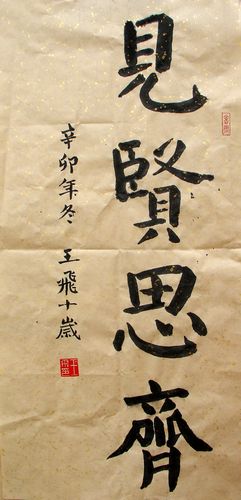 見賢思齊
辛卯年冬 王飛十歲